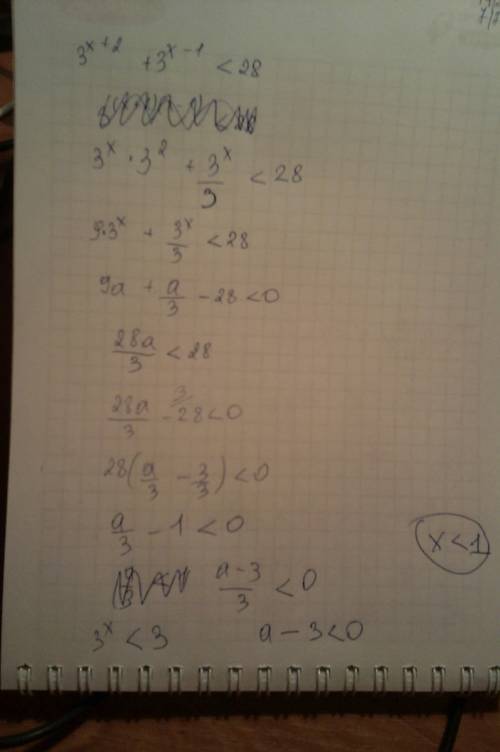 3^(x+2) + 3^(x-1) < 28
3^x · 3^2 + 3^x/3 < 28
9·3^x + 3^x/3 < 28
9a + a/3 - 28 < 0
28a/3 < 28
28a/3 - 28 < 0
28(a/3 - 3/3) < 0
a/3 - 1 < 0
x < 1
(a-3)/3 < 0
3^x < 3 a - 3 < 0